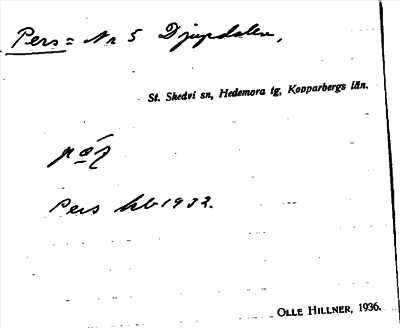 Pers = Nr 5 Djupdalen,
St. Skedvi sn, Hedemora tg, Kopparbergs län.
Pers hb 1932.
OLLE HILLNER, 1936.